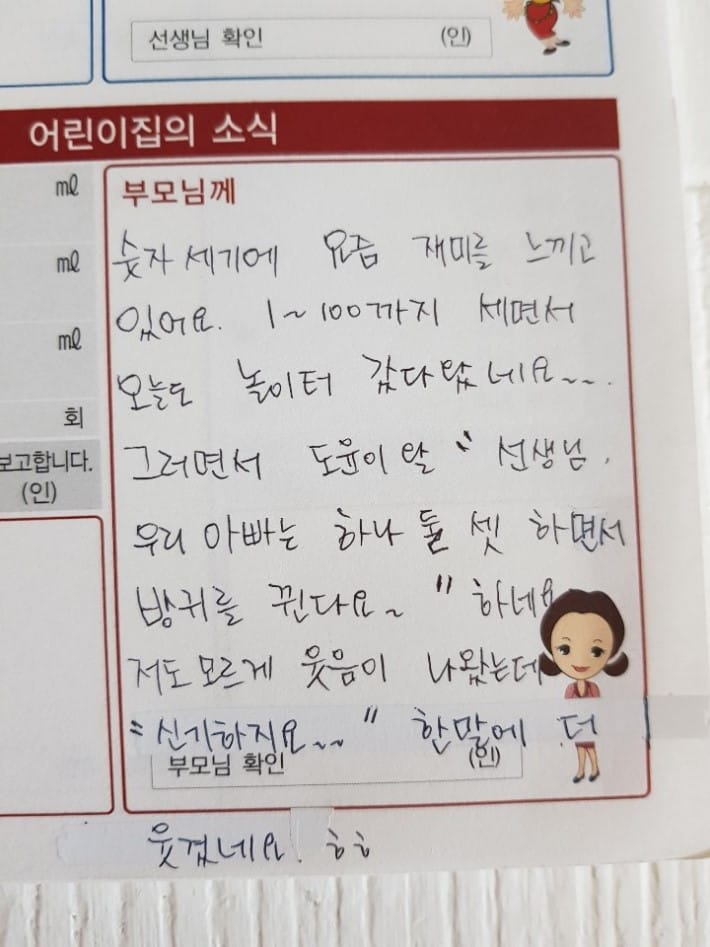 선생님 확인 (인)
어린이집의 소식
㎖
㎖
㎖
회
보고합니다.
(인)
부모님께
숫자 세기에 요즘 재미를 느끼고
있어요. 1~100까지 세면서
오늘도 놀이터 갔다왔네요~~.
그러면서 도윤이 왈 " 선생님.
우리 아빠는 하나 둘 셋 하면서
방귀를 뀐다요~ " 하네요
저도 모르게 웃음이 나왔는데
"신기하지요~~" 한말에 더
부모님 확인 (인)
웃겼네요! ㅎㅎ